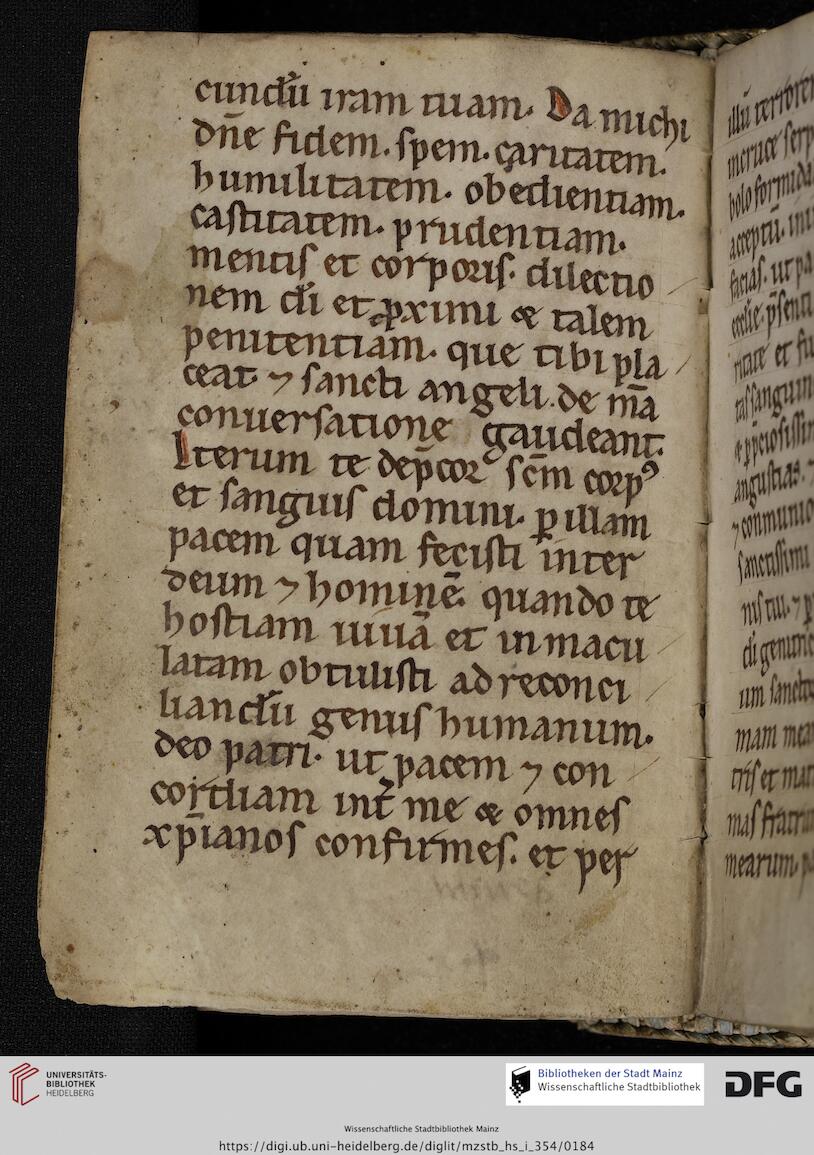 cundū iram tuam. Da michi
dn̄e fidem. spem. caritatem.
humilitatem. obedientiam.
castitatem. prudentiam.
mentis et corporis. dilectio
nem di et ꝓximi & talem
penitentiam. que tibi pla
ceat ⁊ sancti angeli. de mā
conuersatione gaudeant.
Iterum te dep̄cor sc̄m corpꝰ
et sanguis domini. ꝑ illam
pacem quam fecisti inter
deum ⁊ hominē. quando te
hostiam uiuā et inmacu
latam obtulisti ad reconci
liandū genus humanum.
deo patri. ut pacem ⁊ con
cordiam int̄ me & omnes
xp̄ianos confirmes. et per
illū terrore
in cruce serp
bolo formida
acceptū. inu
facias. ut pa
eccl̄ie. p̄senti
ritate et fu
tas sanguin
& p̄ciosissim
angustias. ⁊
⁊ conmunio
sanctissimi
nis tui. ⁊ ꝑ
di genitric
um sancto
mam mea
tris et mat
mas fratru
mearum. p
UNIVERSITÄTS-
BIBLIOTHEK
HEIDELBERG
Bibliotheken der Stadt Mainz
Wissenschaftliche Stadtbibliothek
DFG
Wissenschaftliche Stadtbibliothek Mainz
https://digi.ub.uni-heidelberg.de/diglit/mzstb_hs_i_354/0184